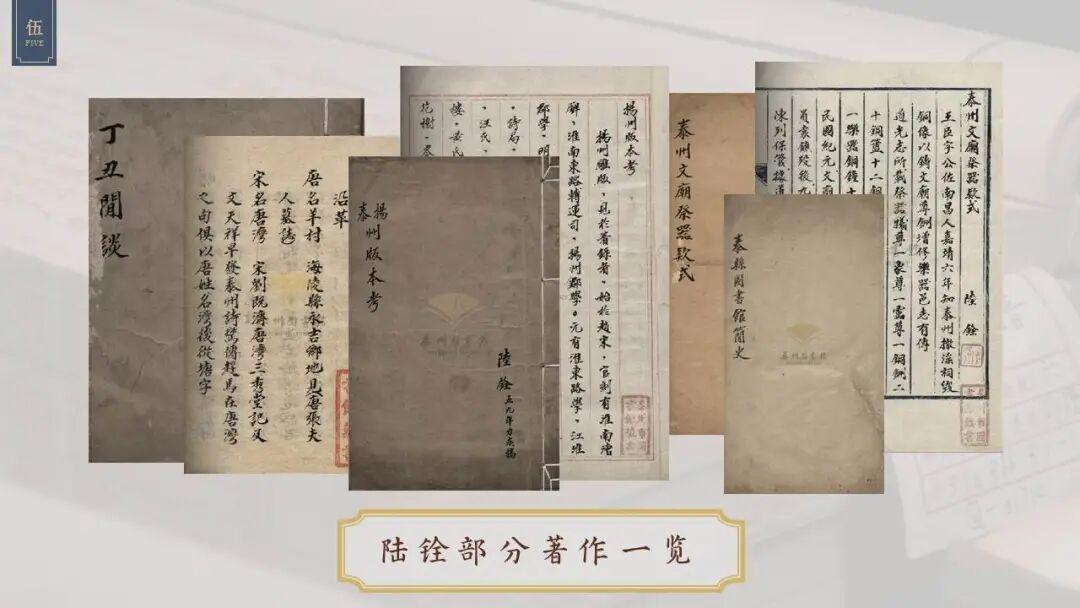 伍
FIVE
丁丑閒談
沿革
唐名羊村　海陵縣永吉鄉地見唐張夫
人墓誌
宋名唐灣　宋劉阮濟唐灣三秀堂記又
文天祥早發泰州詩
之句俱以唐姓名灣後從塘字
揚州版本考
揚州雕版，見於著錄者，始於趙宋，官刻有淮南漕
廨，淮南東路轉運司，揚州郡學。元有淮東路學，江淮
郡學，明
，詩局，
，汪氏，
樓，黃氏
花榭，
揚州版本考
泰
陸銓
泰州文廟祭器款式
泰州文廟祭器款式
陸銓
王臣字公佐南昌人嘉靖六年知泰州撤淫祠毀
銅像以鑄文廟尊鉶增修樂器邑志有傳
道光志所載祭器犧尊一象尊一雲尊一銅鉶二
十銅簠十二銅
一樂器銅鐘十
民國紀元文廟
陳列保管
泰縣圖書館簡史
泰州图书馆
泰州图书馆
陆铨部分著作一览